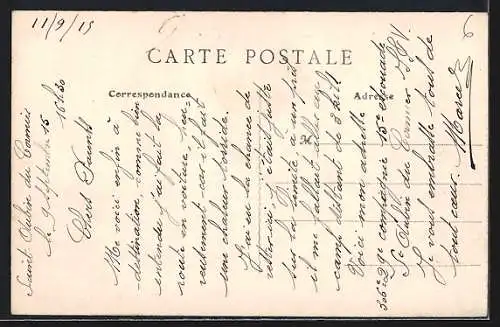 11/9/15
6
CARTE POSTALE
Correspondance
Adresse
M
Saint Aubin du Cormier
le 9 Septembre 15
10h30
Chers Parents
Me voici enfin à
destination, comme bien
entendu j'ai fait la
route en voiture, heu-
reusement car il fait
une chaleur torride.
J'ai eu la chance de
rester ici, il était juste
sur la limite, à un près
il me fallait aller au
camp distant de 3 kil 4
Voici mon adresse
29e compagnie 15e escouade
St Aubin du Cormier I et V.
Je vous embrasse tous de
tout cœur. Marcel